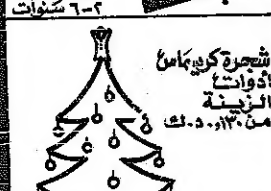 ٢-٦ سنوات
شجرة كريسماس
أدوات
الزينة
من ١٣٠,٠ د.ك